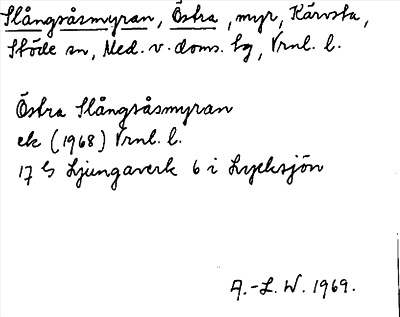 Slångsåsmyran, Östra, myr, Kärvsta,
Stöde sn, Med. v. doms. tg, Vrnl. l.
Östra Slångsåsmyran
ek (1968) Vrnl. l.
17 G Ljungaverk 6 i Lycksjön
A.-L. W. 1969.